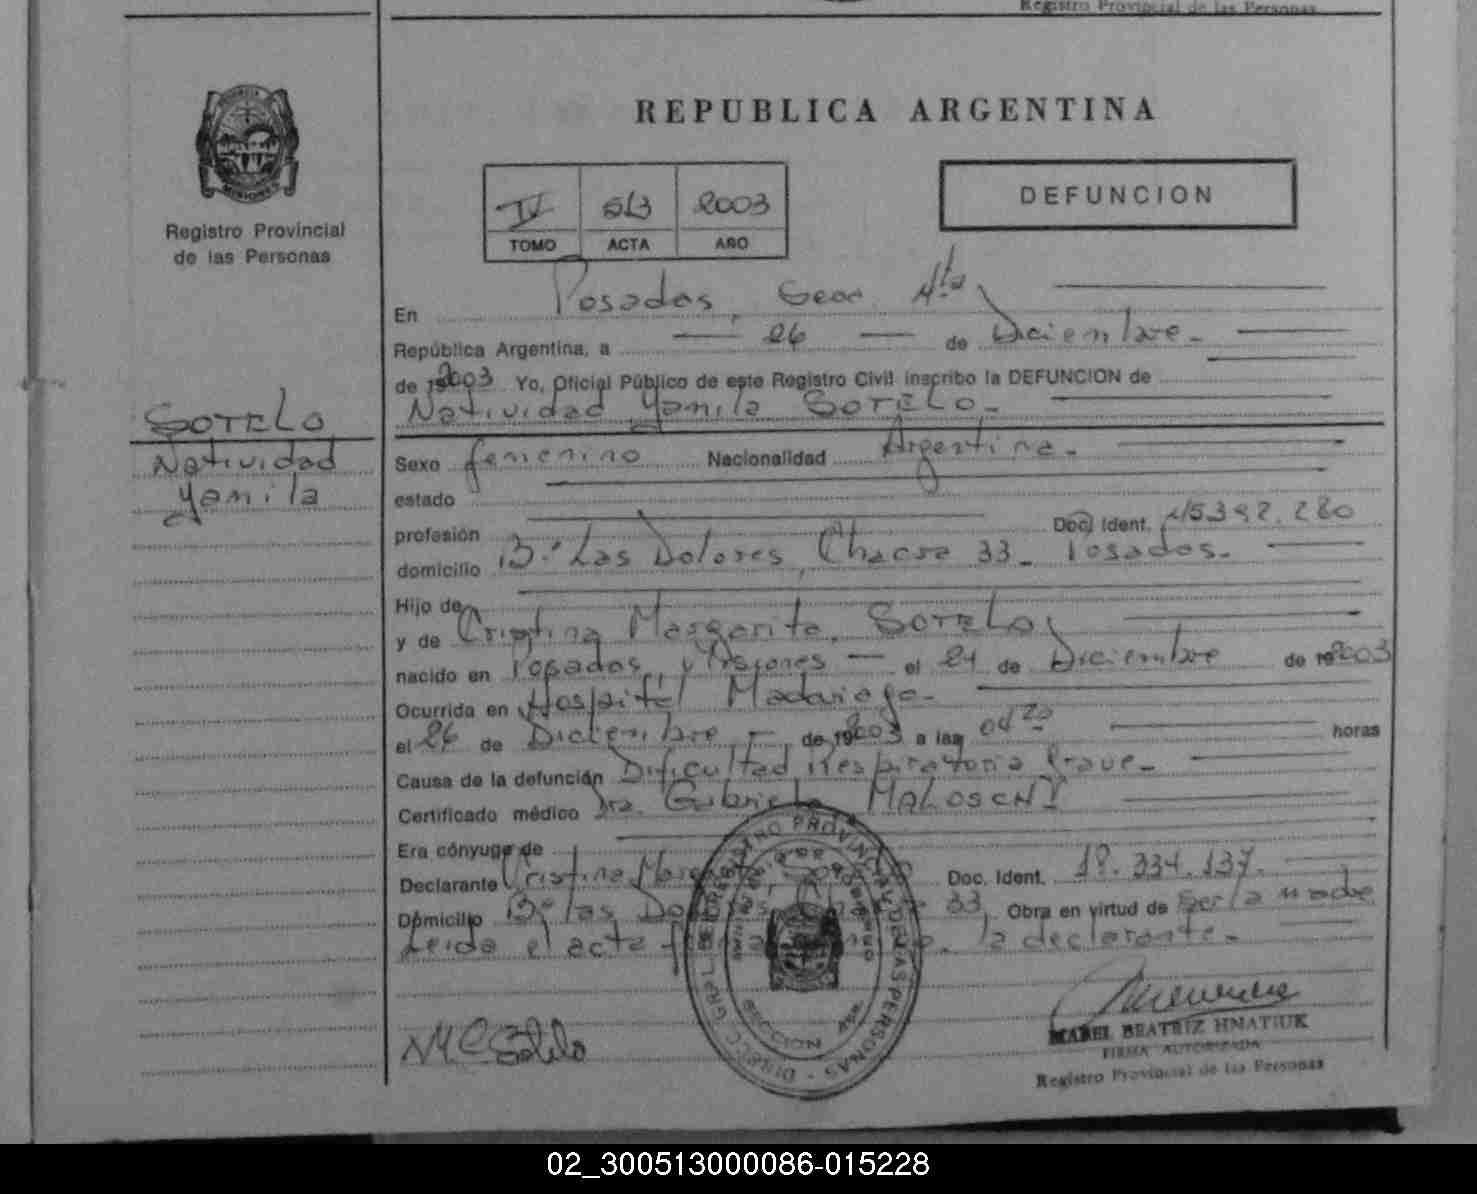 Registro Provincial de las Personas
REPUBLICA ARGENTINA
Registro Provincial
de las Personas
IV 513 2003
TOMO ACTA AÑO
DEFUNCION
En Posadas, Secc. 4ta
República Argentina, a 26 de Diciembre
de 2003 Yo, Oficial Público de este Registro Civil inscribo la DEFUNCION de
Natividad Yamila SOTELO
SOTELO
Natividad
Yamila
Sexo femenino Nacionalidad Argentina
estado
profesión Doc. Ident.
domicilio B° Las Dolores, Chacra 33 Posadas
Hijo de
y de Cristina Margarita SOTELO
nacido en Posadas, Misiones el 24 de Diciembre de 2003
Ocurrida en Hospital Madariaga
el 26 de Diciembre de 2003 a las 04 20 horas
Causa de la defunción Dificultad Respiratoria Grave
Certificado médico Dra. Gabriela
Era cónyuge de
Declarante Cristina Doc. Ident. 18.334.137
Domicilio B° Las 33, Obra en virtud de ser la madre
Leida el acta la declarante
MABEL BEATRIZ HNATIUK
FIRMA AUTORIZADA
Registro Provincial de las Personas
02_300513000086-015228